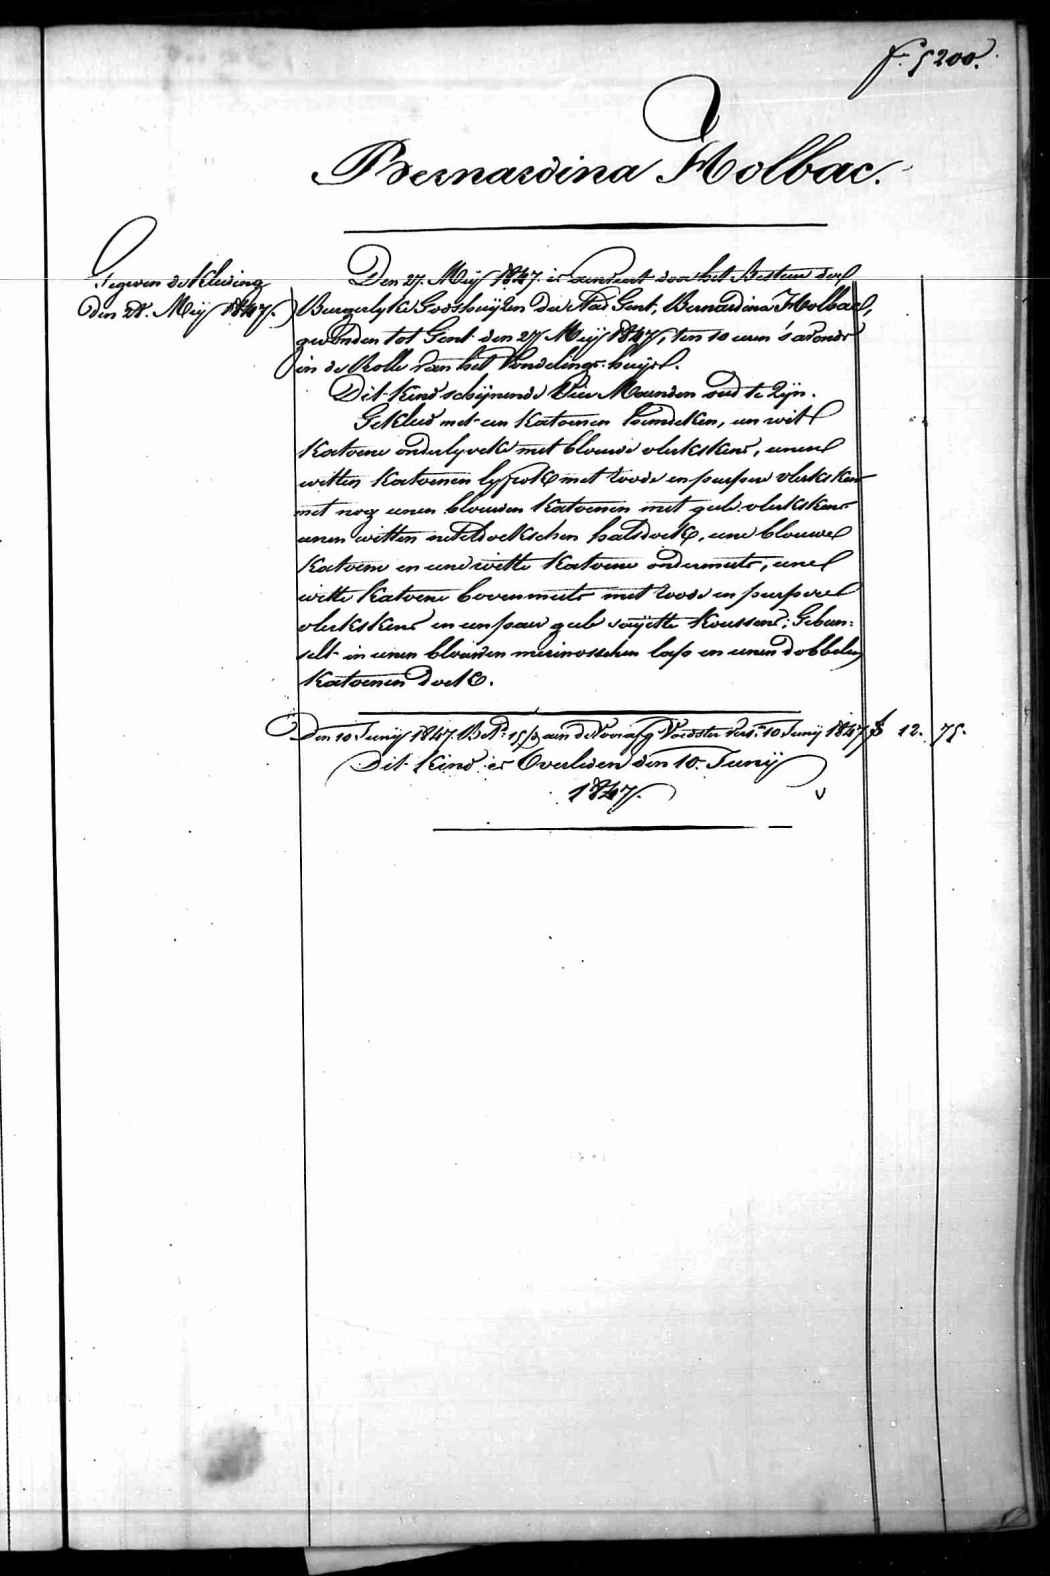 f. 5200.
Bernardina Holbac.
Gegeven de Kleding
den 28. Meij 1847.
Den 27. Meij 1847. is aenveert door het Bestuer der
Burgerlyke Godshuijzen der Stad Gent, Bernardina Holbac,
gevonden tot Gent den 27 Meij 1847, ten 10 uren 's avonds
in de Rolle van het Vondelings-huijs.
Dit kind schijnende Vier Maenden oud te Zijn.
Gekleed met een katoenen hemdeken, een wit
katoene onderlyveke met blouwe vlekskens, eenen
witten katoenen lyfrok met roode en purpere vlekskens
met nog eenen blouwen katoenen met gele vlekskens
eenen witten neteldoekschen halsdoek, eene blouwe
katoene en eene witte katoene ondermuts, eene
witte katoene bovenmuts met roode en purpere
vlekskens en een paer gele sayette koussens; Gebun=
selt in eenen blouwen merinosschen lap en eenen dobbelen
katoenen doek.
Den 10 Junij 1847. Bet. 15 aen de Voedster 10 Junij 1847 12. 75.
Dit Kind is Overleden den 10. Junij
1847.